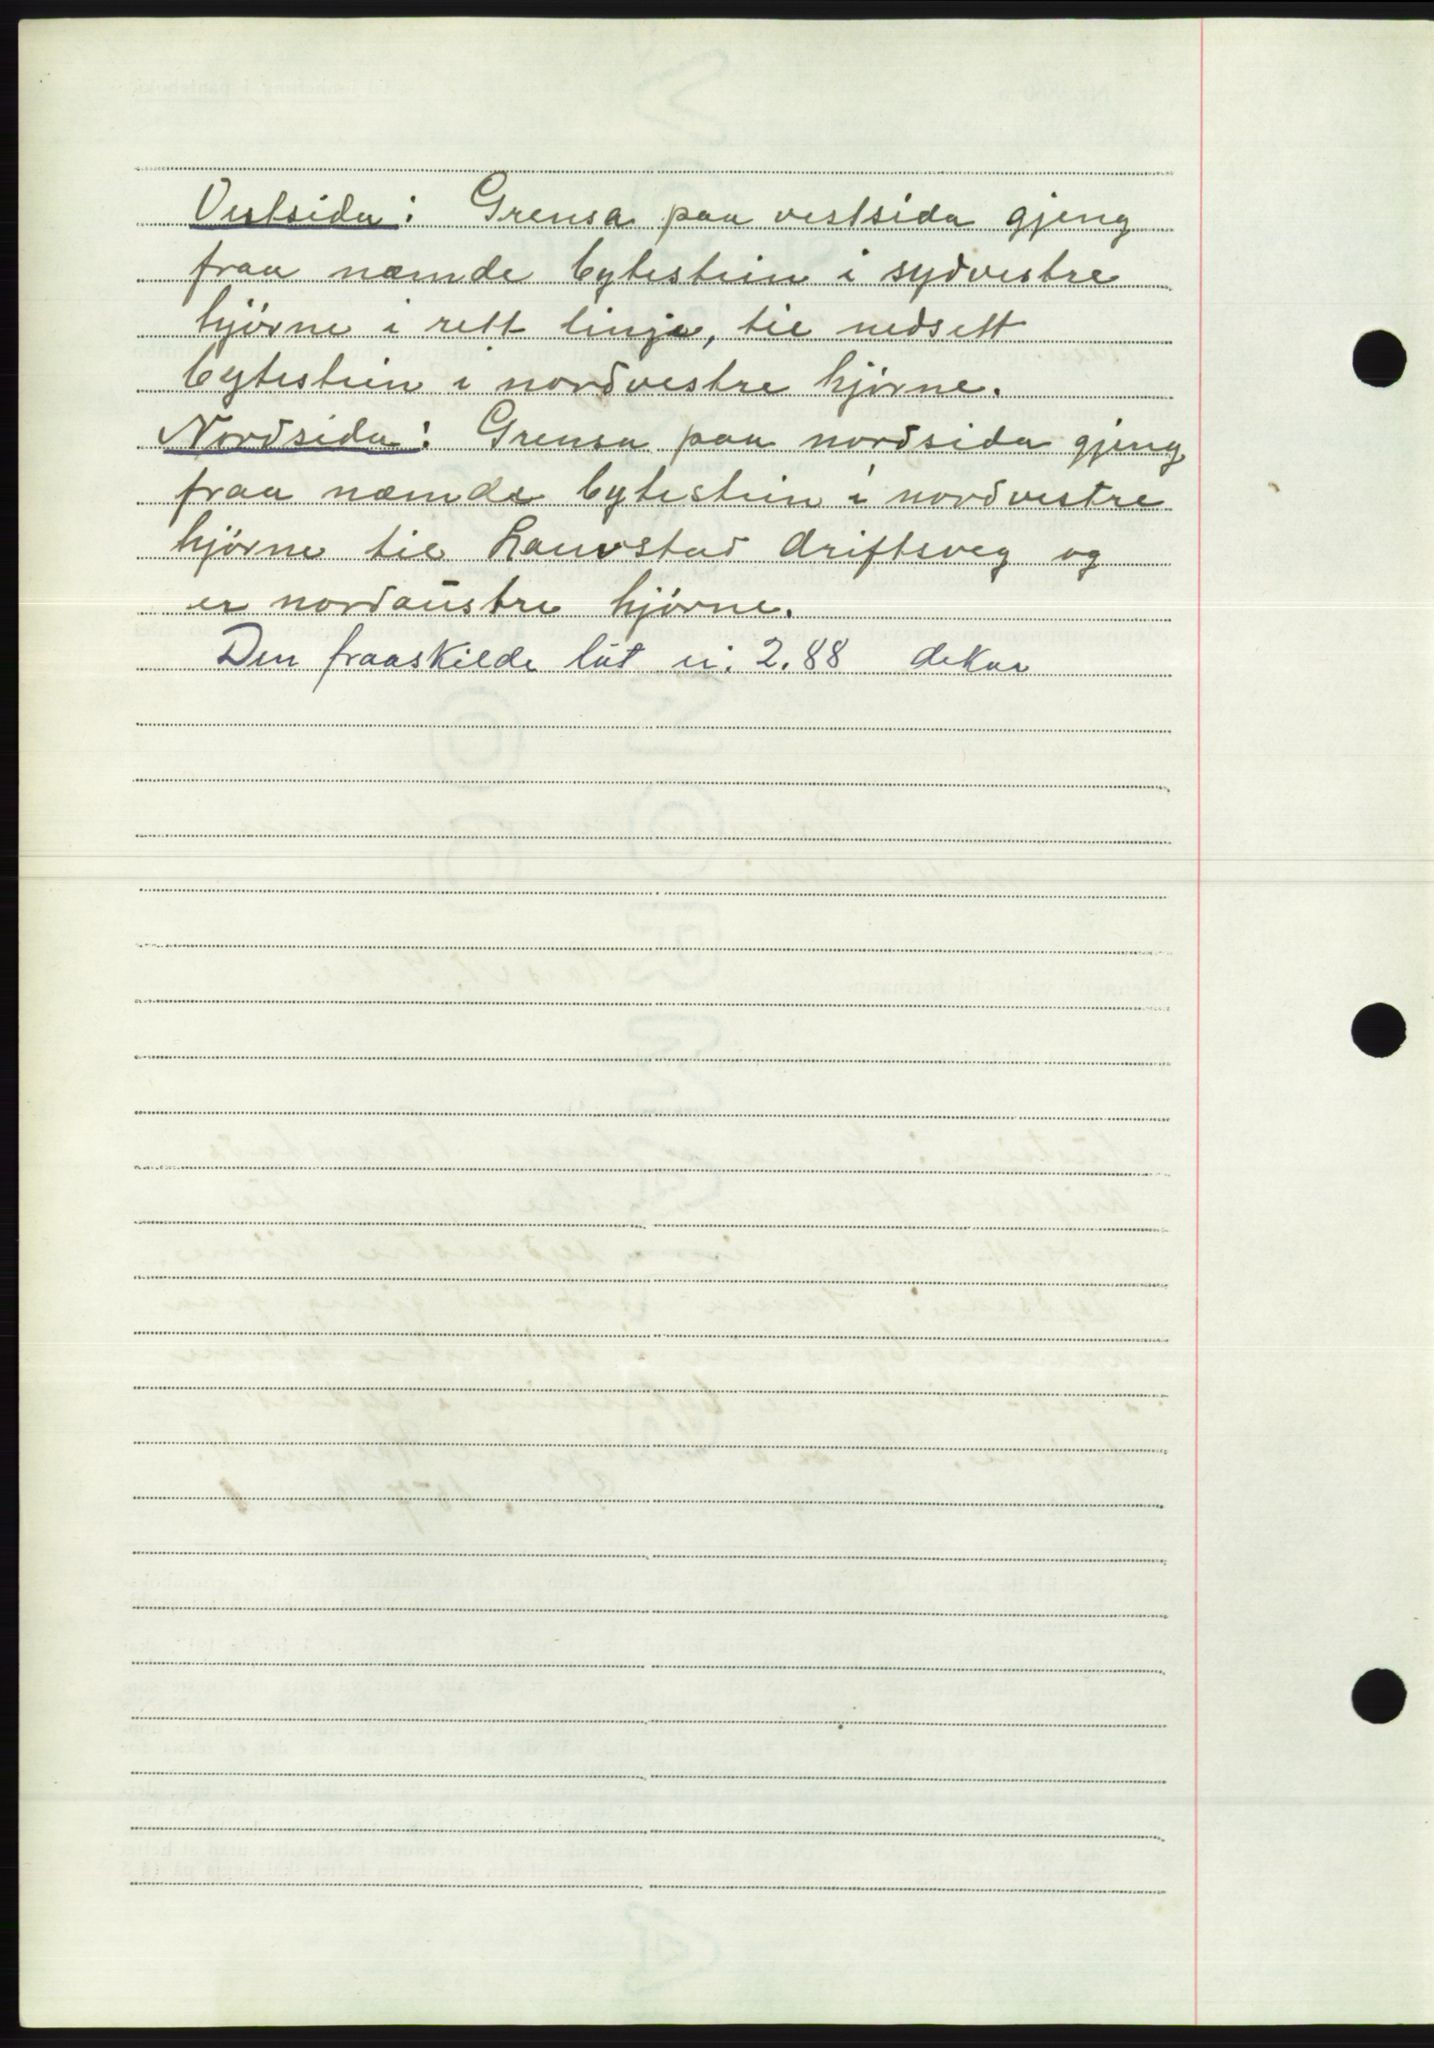 Vestsida: Grensa paa vestsida gjeng
fraa næmde bytestein i sydvestre
hjörne i rett linje, til nedsett
bytestein i nordvestre hjörne.
Nordsida: Grensa paa nordsida gjeng
fraa næmde bytestein i nordvestre
hjörne til Lauvstad driftsveg og
er nordaustre hjörne.
Den fraaskilde lut er. 2.88 dekar